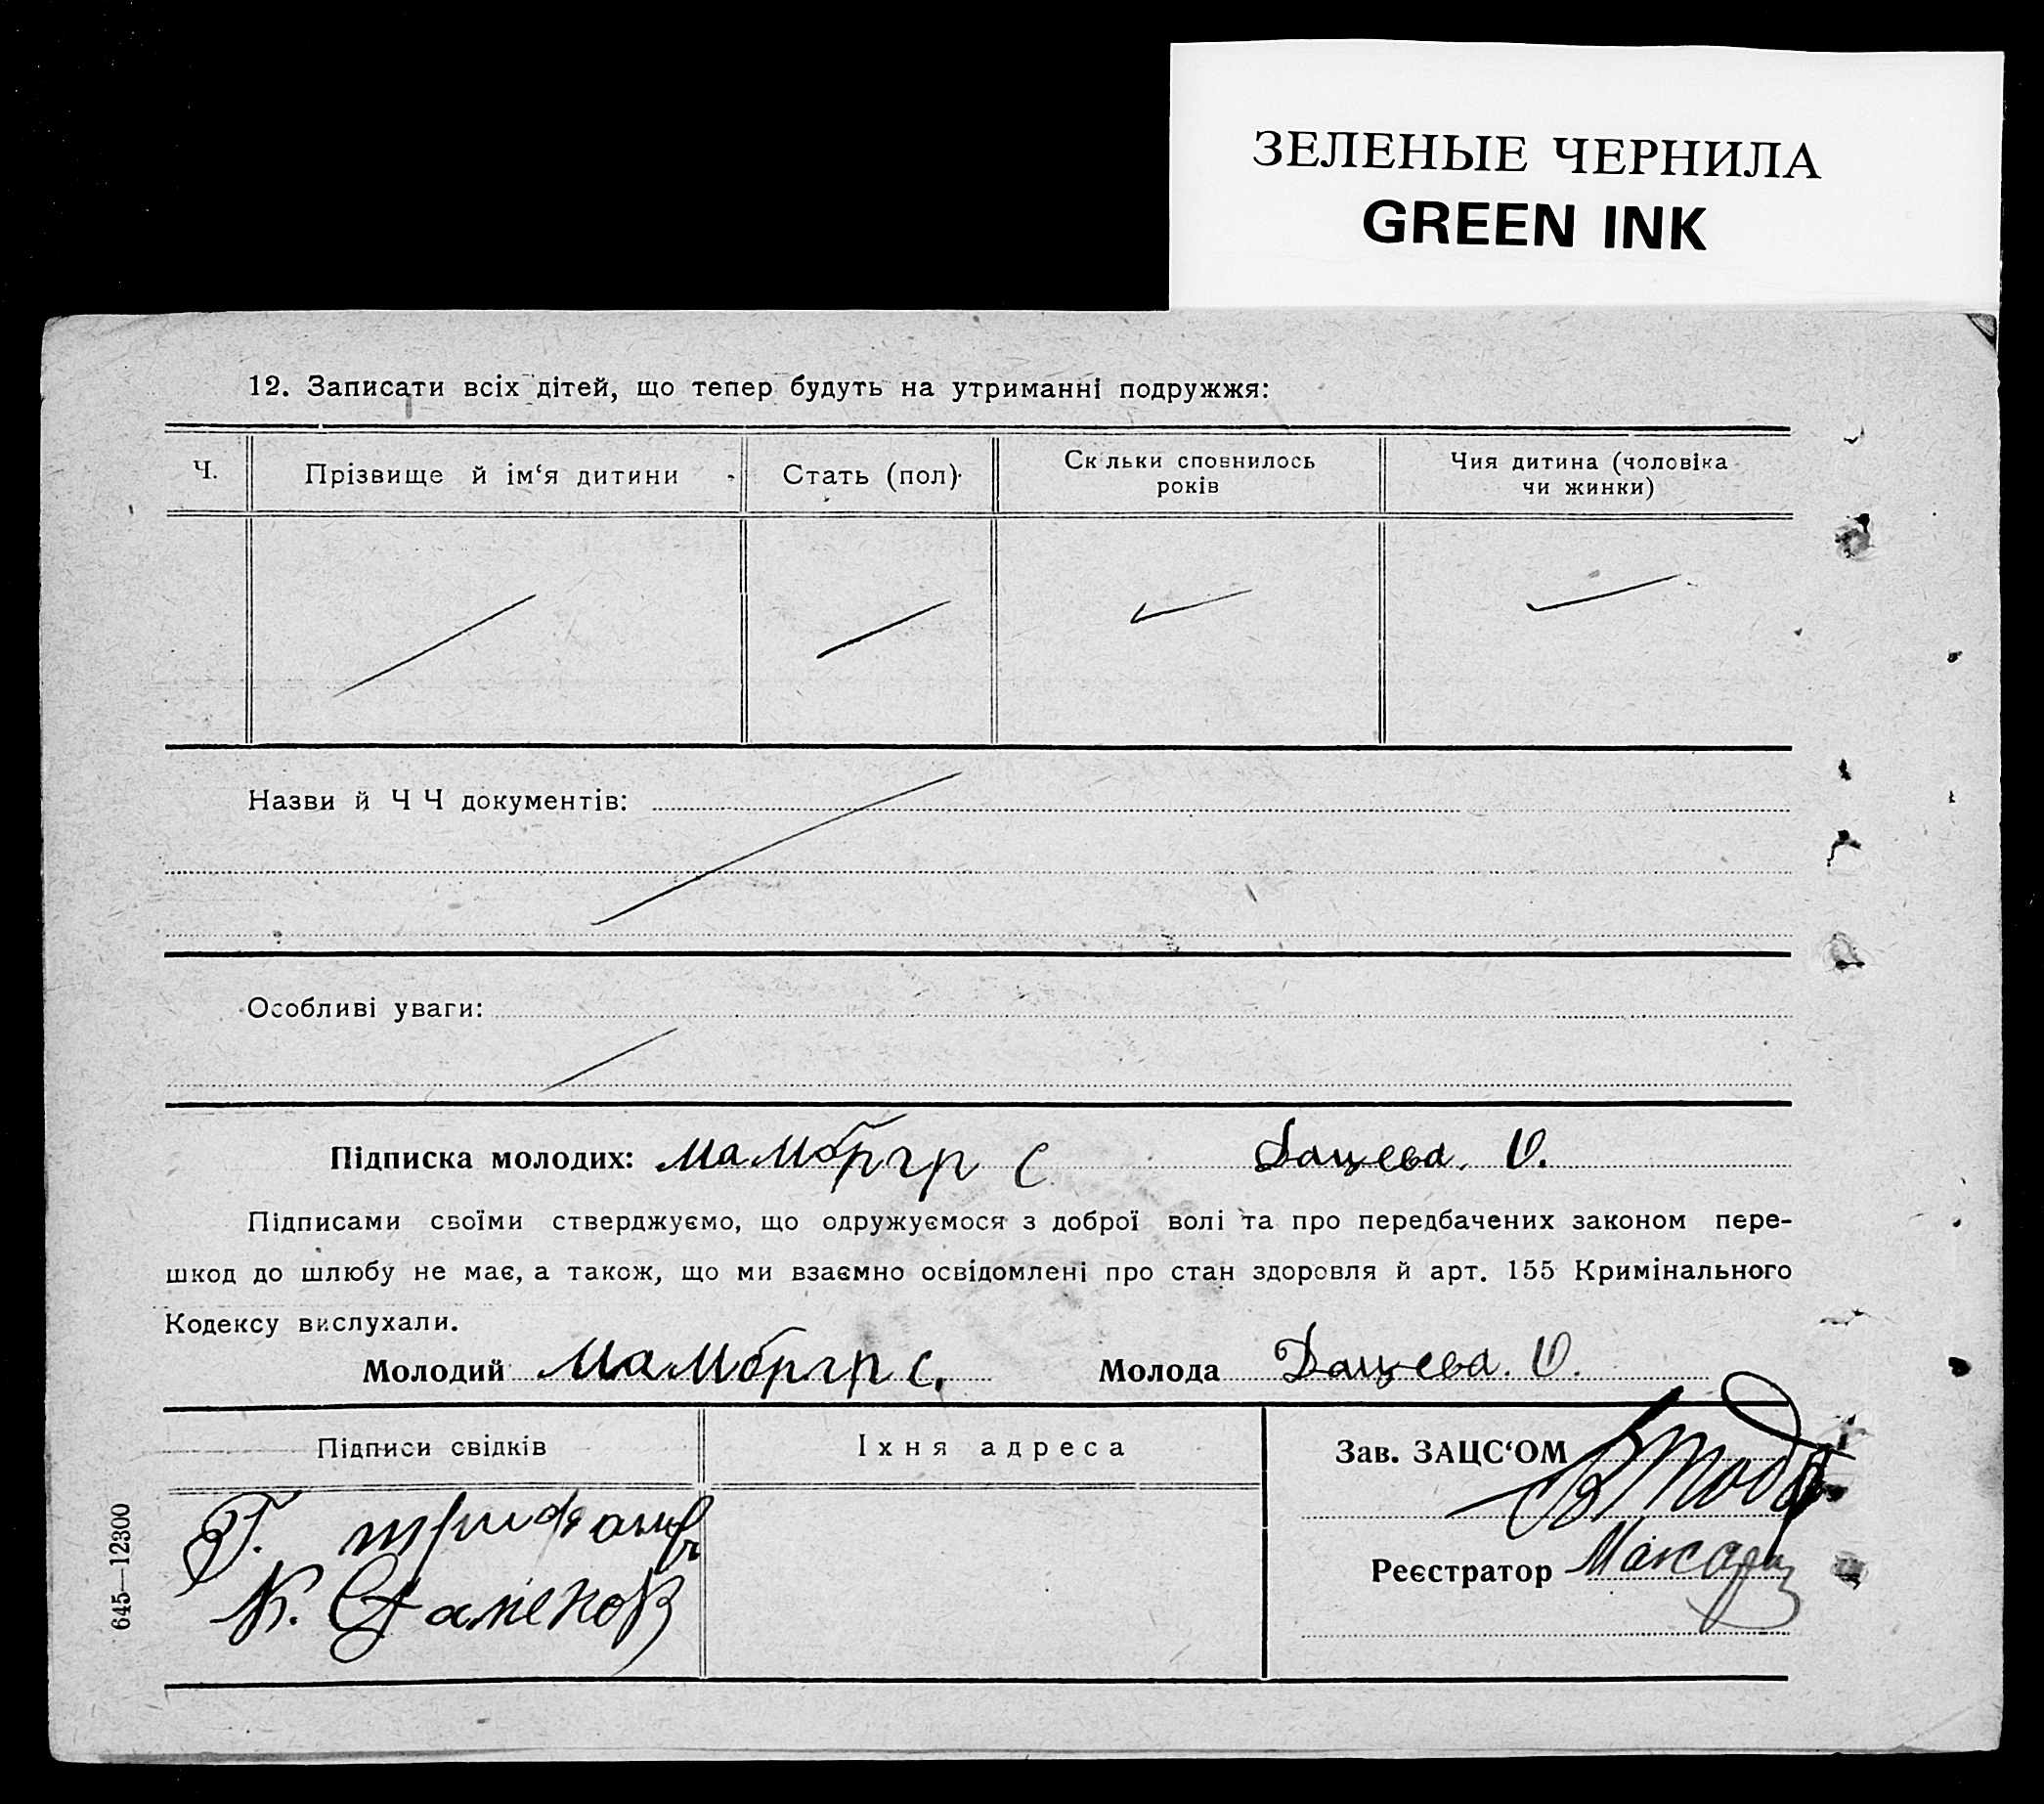 ЗЕЛЕНЫЕ ЧЕРНИЛА
GREEN INK
12. Записати всіх дітей, що тепер будуть на утриманні подружжя:
Ч. Прізвище й ім‘я дитини Стать (пол) Ск льки сповнилось років Чия дитина (чоловіка чи жинки)
Назви й Ч Ч документів:
Особливі уваги:
Підписка молодих: С Дацева. О.
Підписами своїми стверджуємо, що одружуємося з доброї волі та про передбачених законом пере-
шкод до шлюбу не має, а також, що ми взаємно освідомлені про стан здоровля й арт. 155 Кримінального
Кодексу вислухали.
Молодий С. Молода Дацева. О.
Підписи свідків Іхня адреса Зав. ЗАЦС‘ОМ
Г.
К. Стаменов
Реєстратор
645—12300